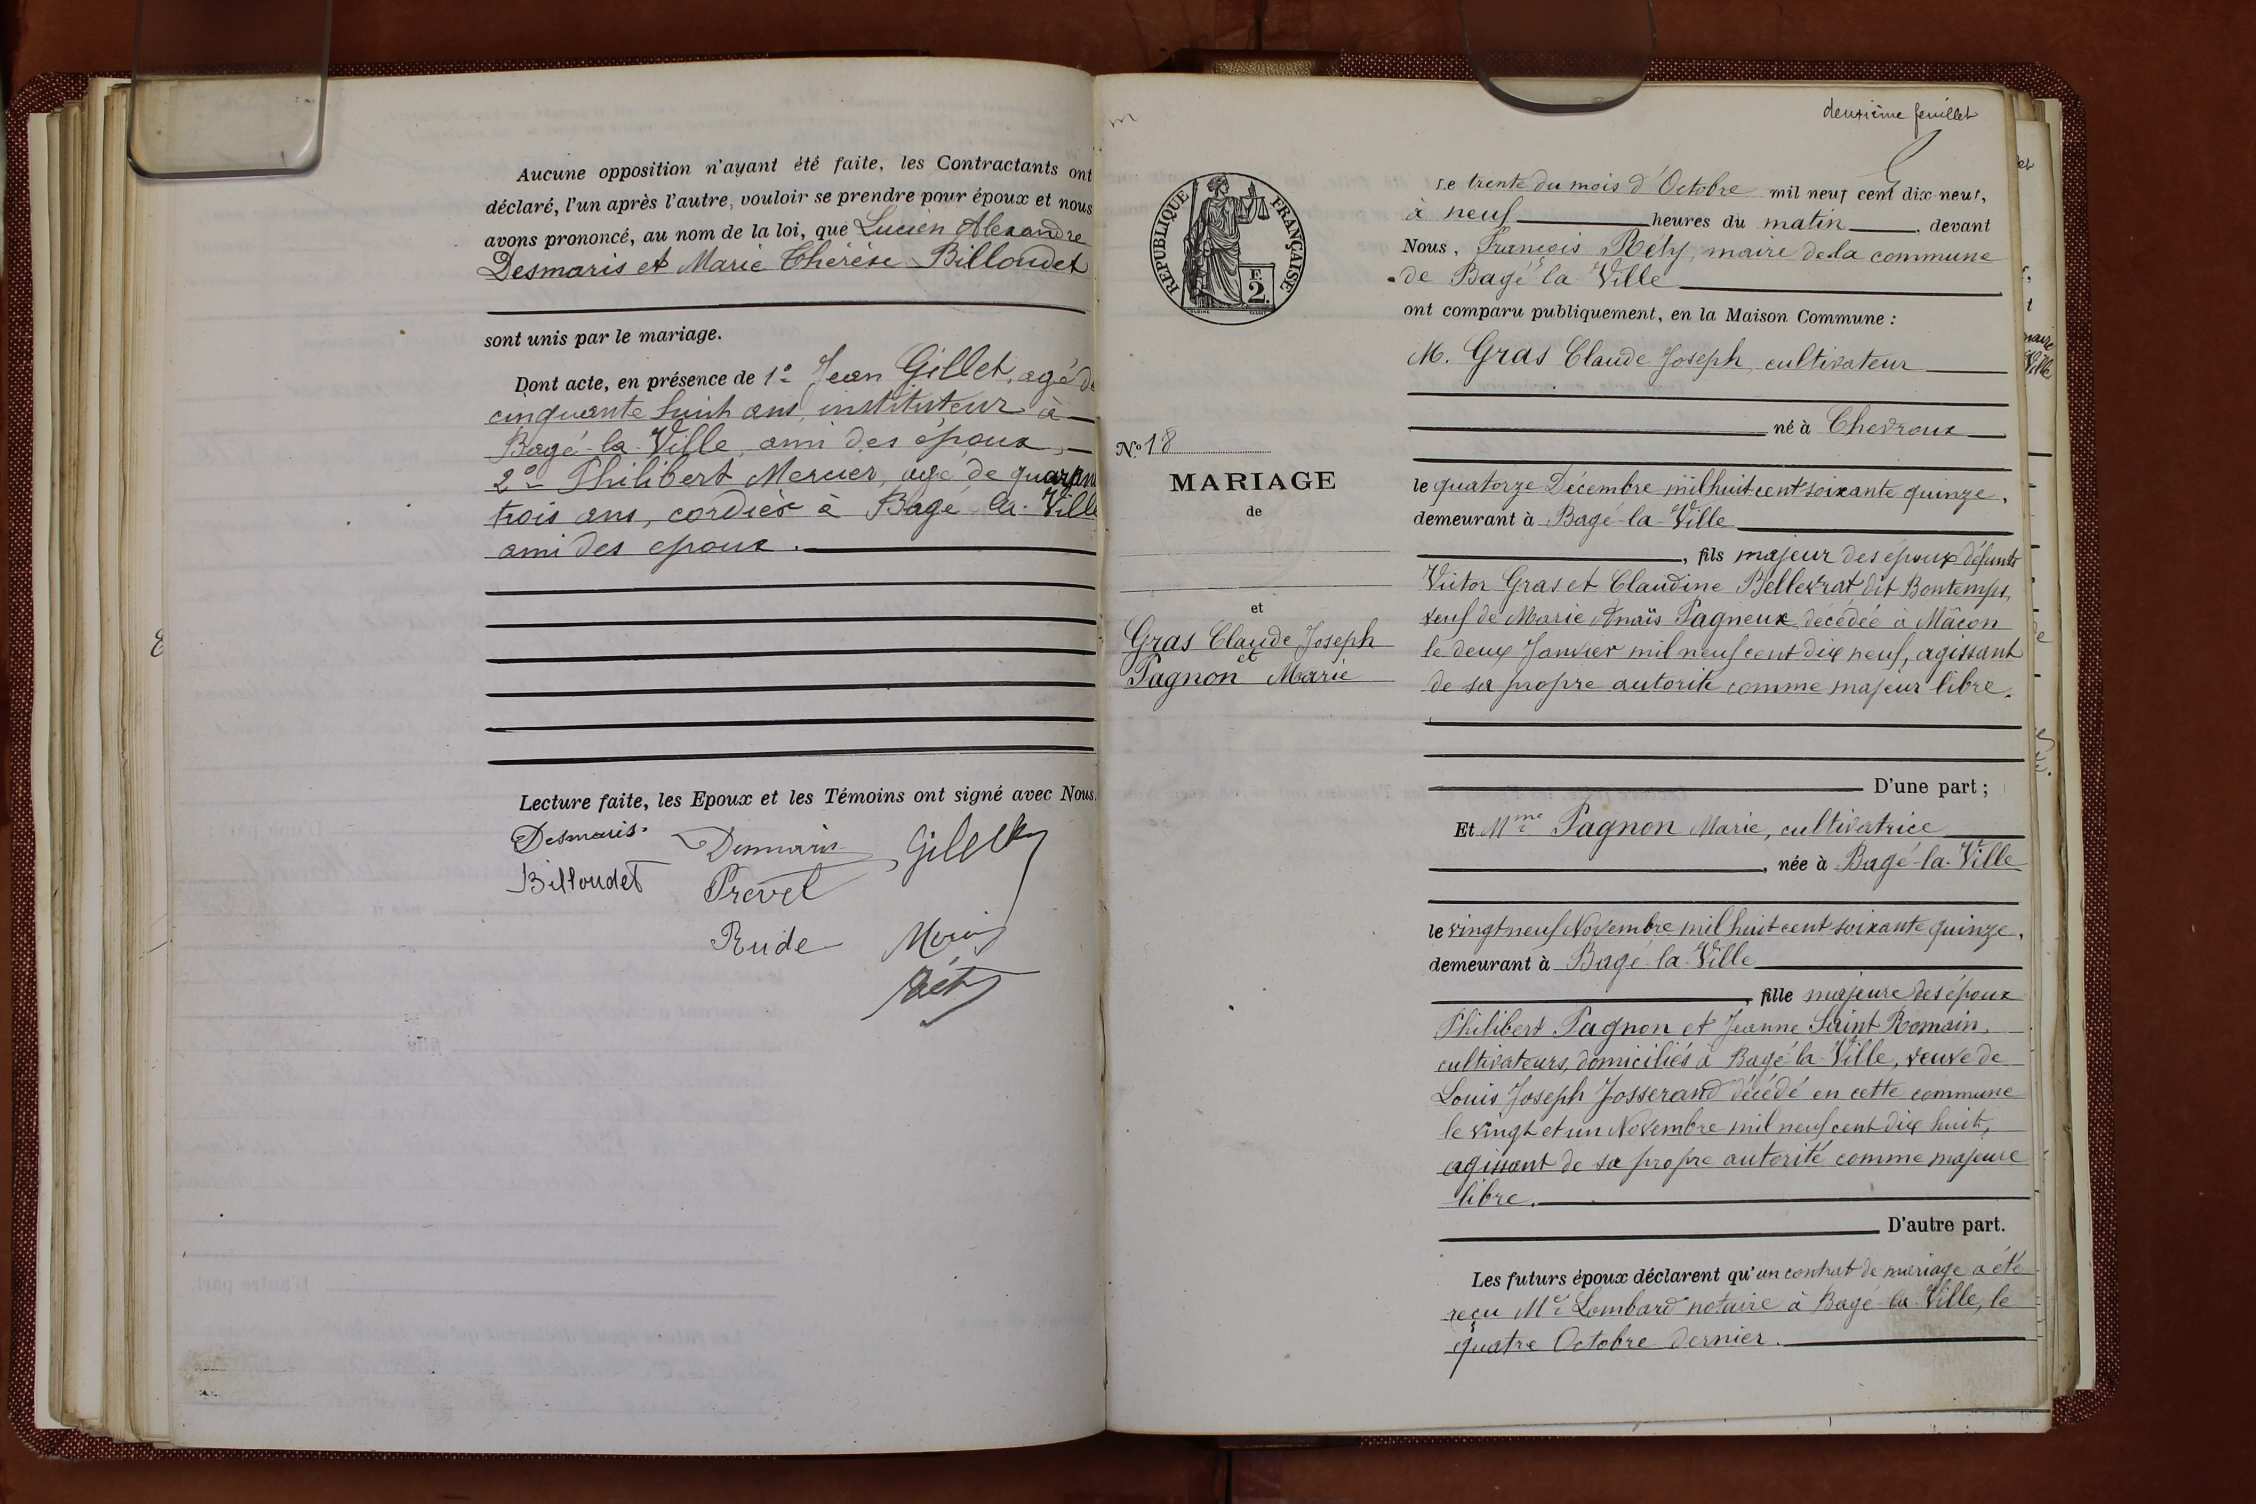 Aucune opposition n'ayant été faite, les Contractants ont
déclaré, l'un après l'autre, vouloir se prendre pour époux et nous
avons prononcé, au nom de la loi, que Lucien Alexandre
Desmaris et Marie Thérèse Billoudet
sont unis par le mariage.
Dont acte, en présence de 1° Jean Gillet, agé de
cinquante huit ans, instituteur à
Bagé-la-Ville, ami des époux,
2° Philibert Mercier, age de quaran
trois ans, cordier à Bagé-la-Ville
ami des epoux.
Lecture faite, les Epoux et les Témoins ont signé avec Nous.
Desmaris. Desmaris Gillet
Billoudet Prevel
Rude
Réty
deuxième feuillet
RÉPUBLIQUE FRANÇAISE
F.
2.
Le trente du mois d'Octobre mil neuf cent dix-neuf,
à neuf heures du matin, devant
Nous, François Rety, maire de la commune
de Bagé la Ville
ont comparu publiquement, en la Maison Commune :
M. Gras Claude Joseph, cultivateur
né à Chevroux
le quatorze Décembre mil huit cent soixante quinze,
demeurant à Bagé-la-Ville
, fils majeur des époux défunts
Victor Gras et Claudine Bellevrat dit Bontemps,
veuf de Marie Anaïs Pagneux décédée à Mâcon
le deux Janvier mil neuf cent dix neuf, agissant
de sa propre autorité comme majeur libre.
D'une part ;
N.° 18
MARIAGE
de
et
Gras Claude Joseph
et
Pagnon Marie
Et Mme Pagnon Marie, cultivatrice
, née à Bagé-la-Ville
le vingt neuf Novembre mil huit cent soixante quinze,
demeurant à Bagé-la-Ville
, fille majeure des époux
Philibert Pagnon et Jeanne Saint Romain,
cultivateurs, domiciliés à Bagé-la-Ville, veuve de
Louis Joseph Josserand décédé en cette commune
le vingt et un Novembre mil neuf cent dix huit,
agissant de sa propre autorité comme majeure
libre.
D'autre part.
Les futurs époux déclarent qu'un contrat de mariage a été
reçu Me Lombard notaire à Bagé-la-Ville, le
quatre Octobre dernier.